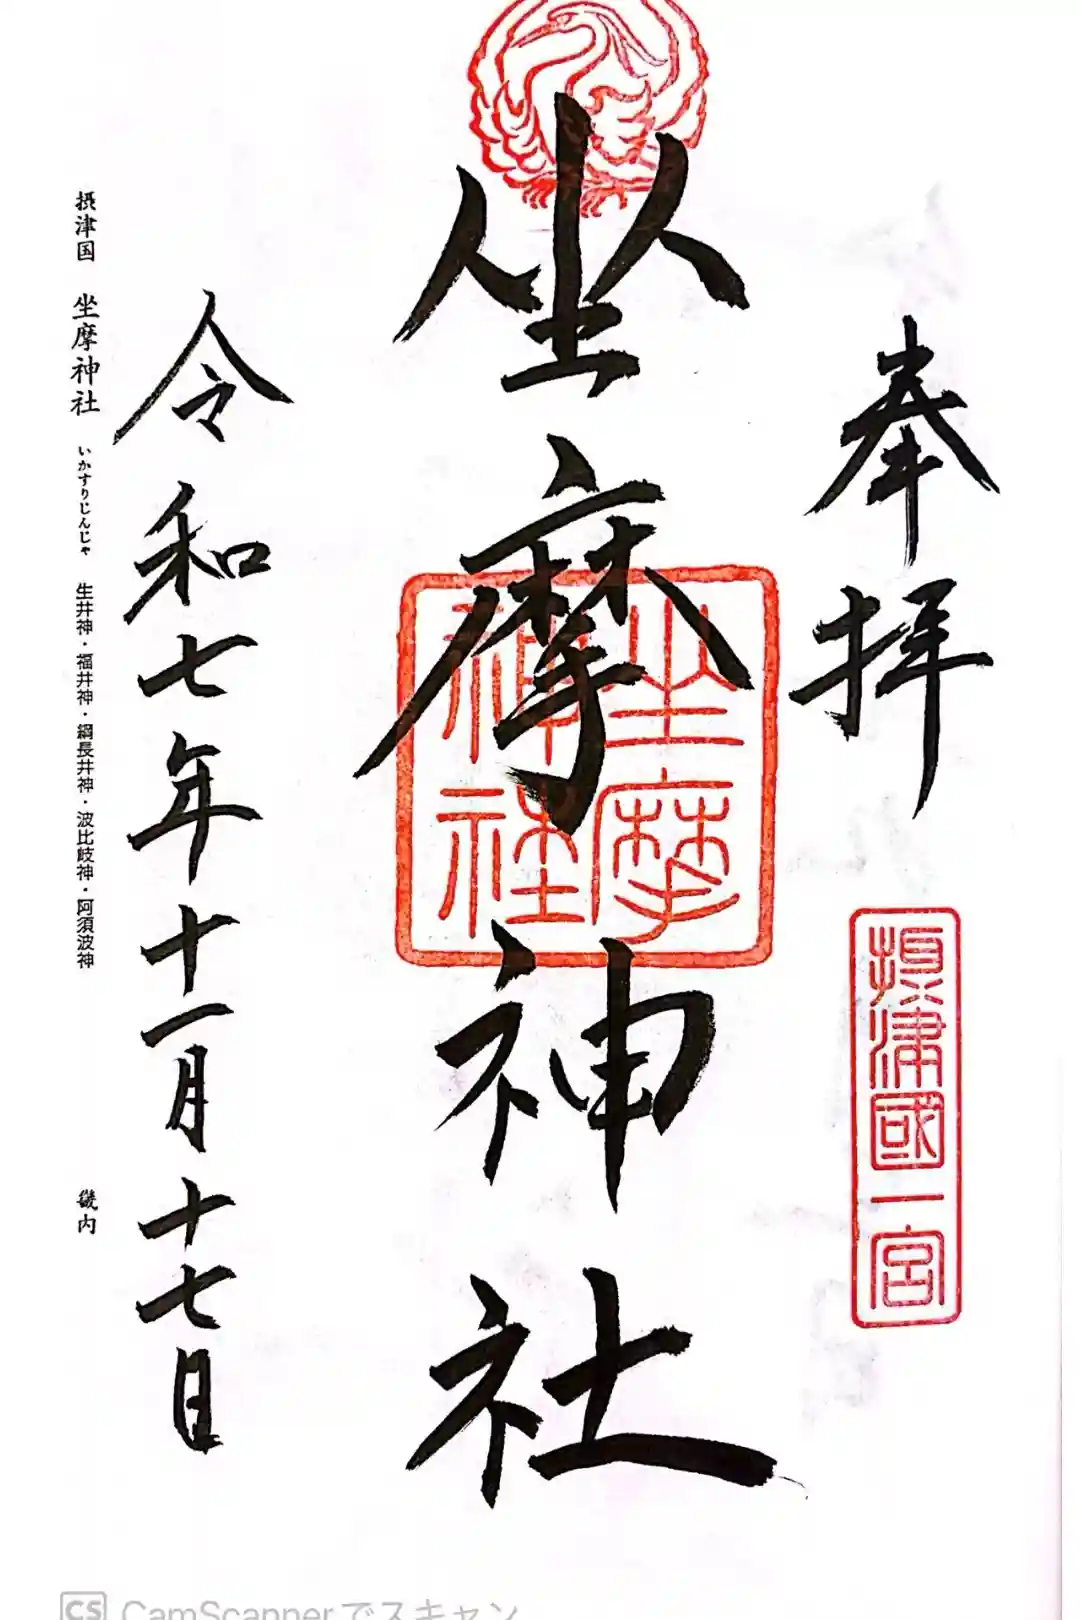 奉拝
摂津國一宮
坐摩神社
坐摩
神社
令和七年十一月十七日
摂津国 坐摩神社 いかすりじんじゃ 生井神・福井神・綱長井神・波比岐神・阿須波神 畿内
CS CamScannerでスキャン